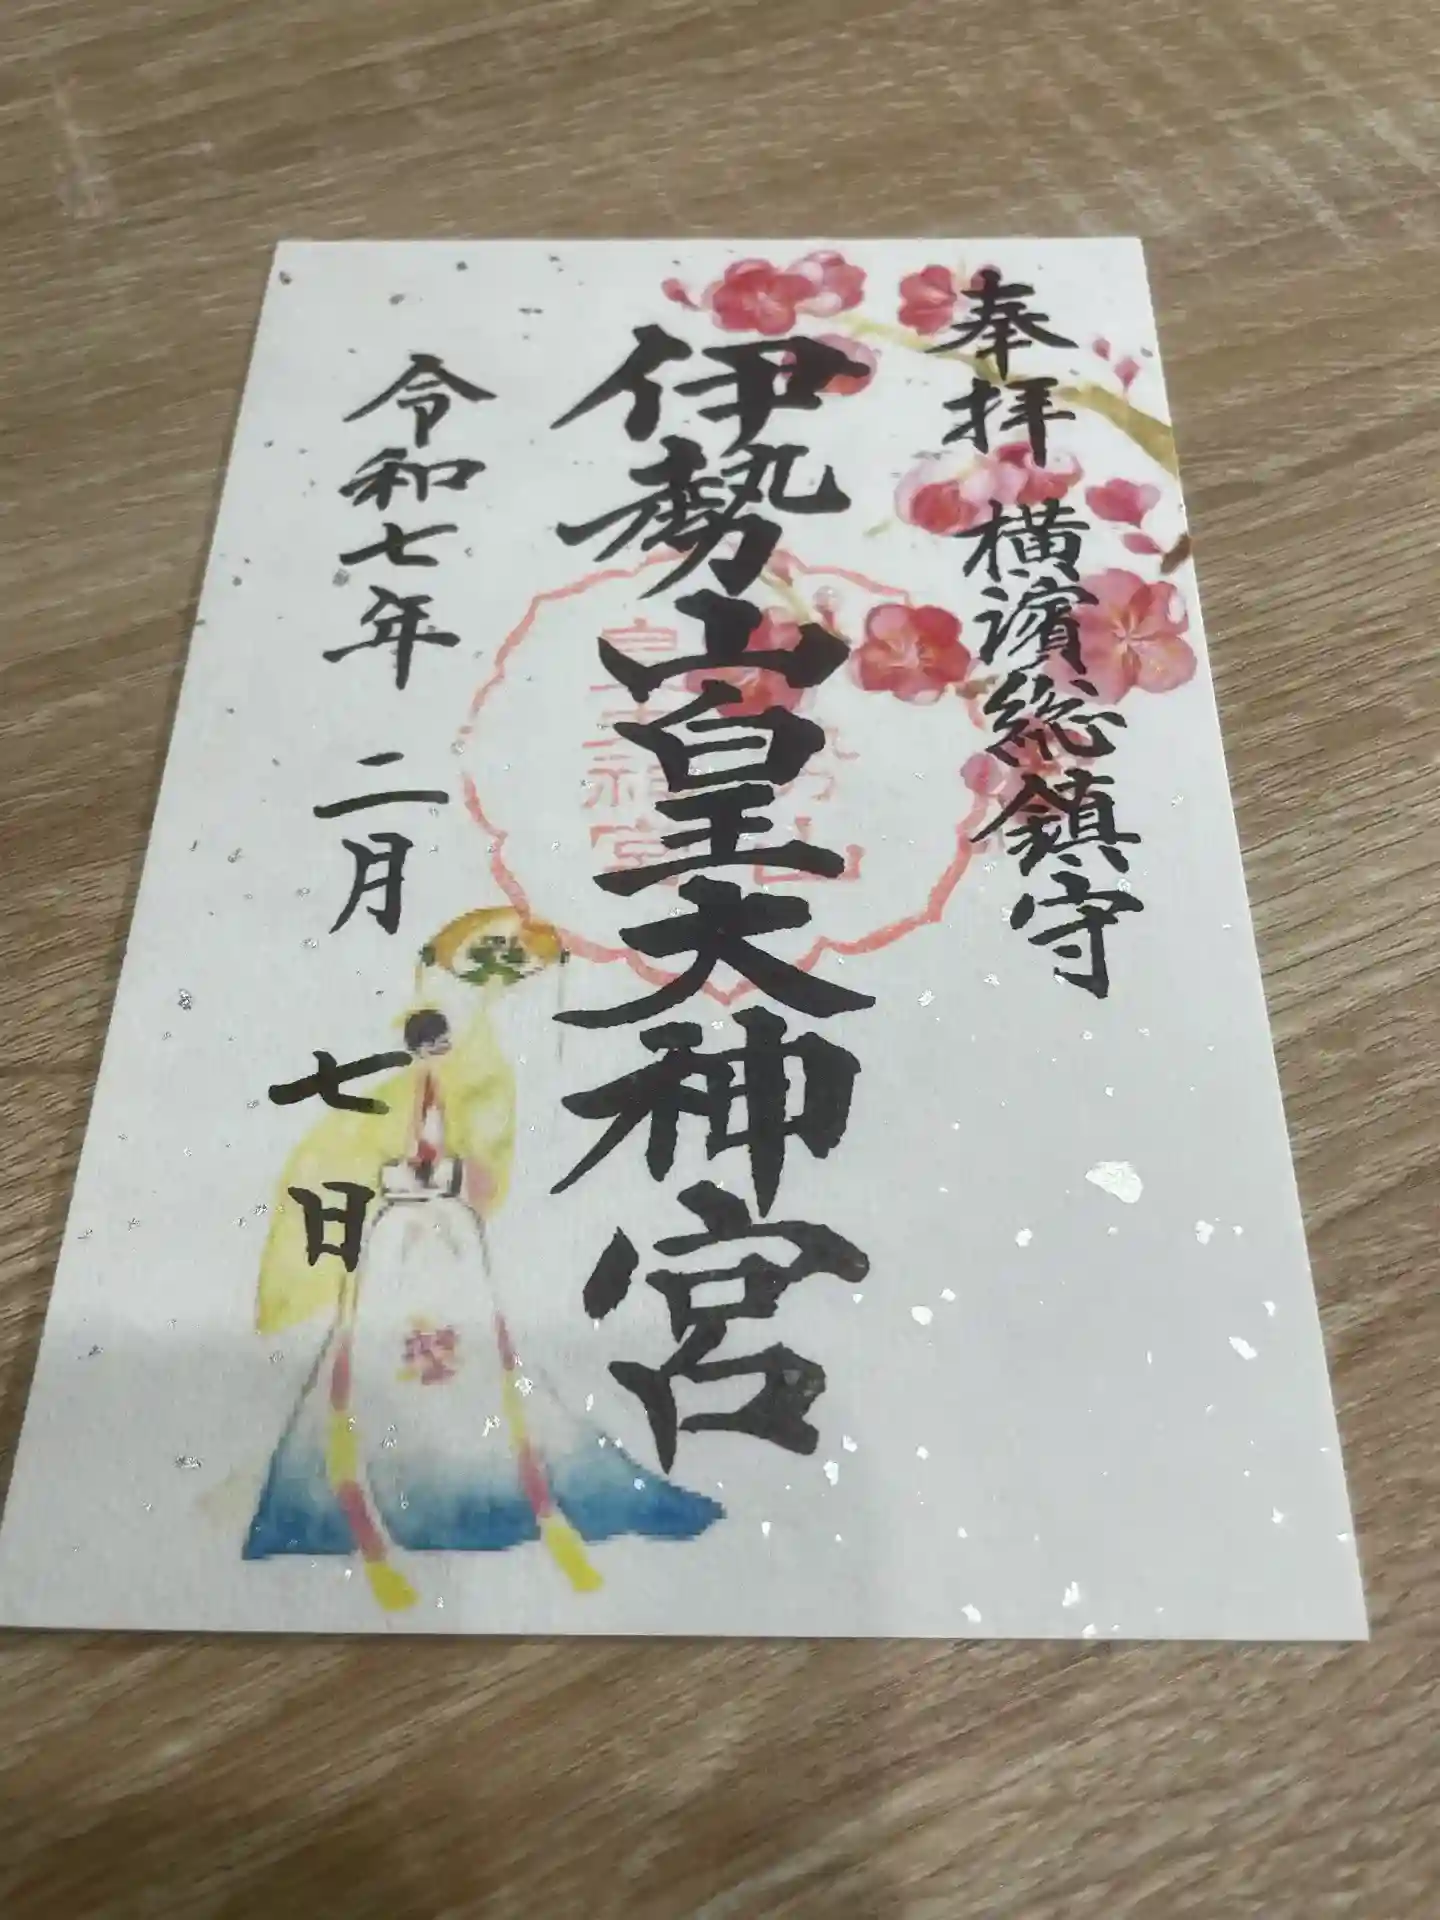 奉拝 横濱総鎮守
伊勢山皇大神宮
令和七年 二月 七日